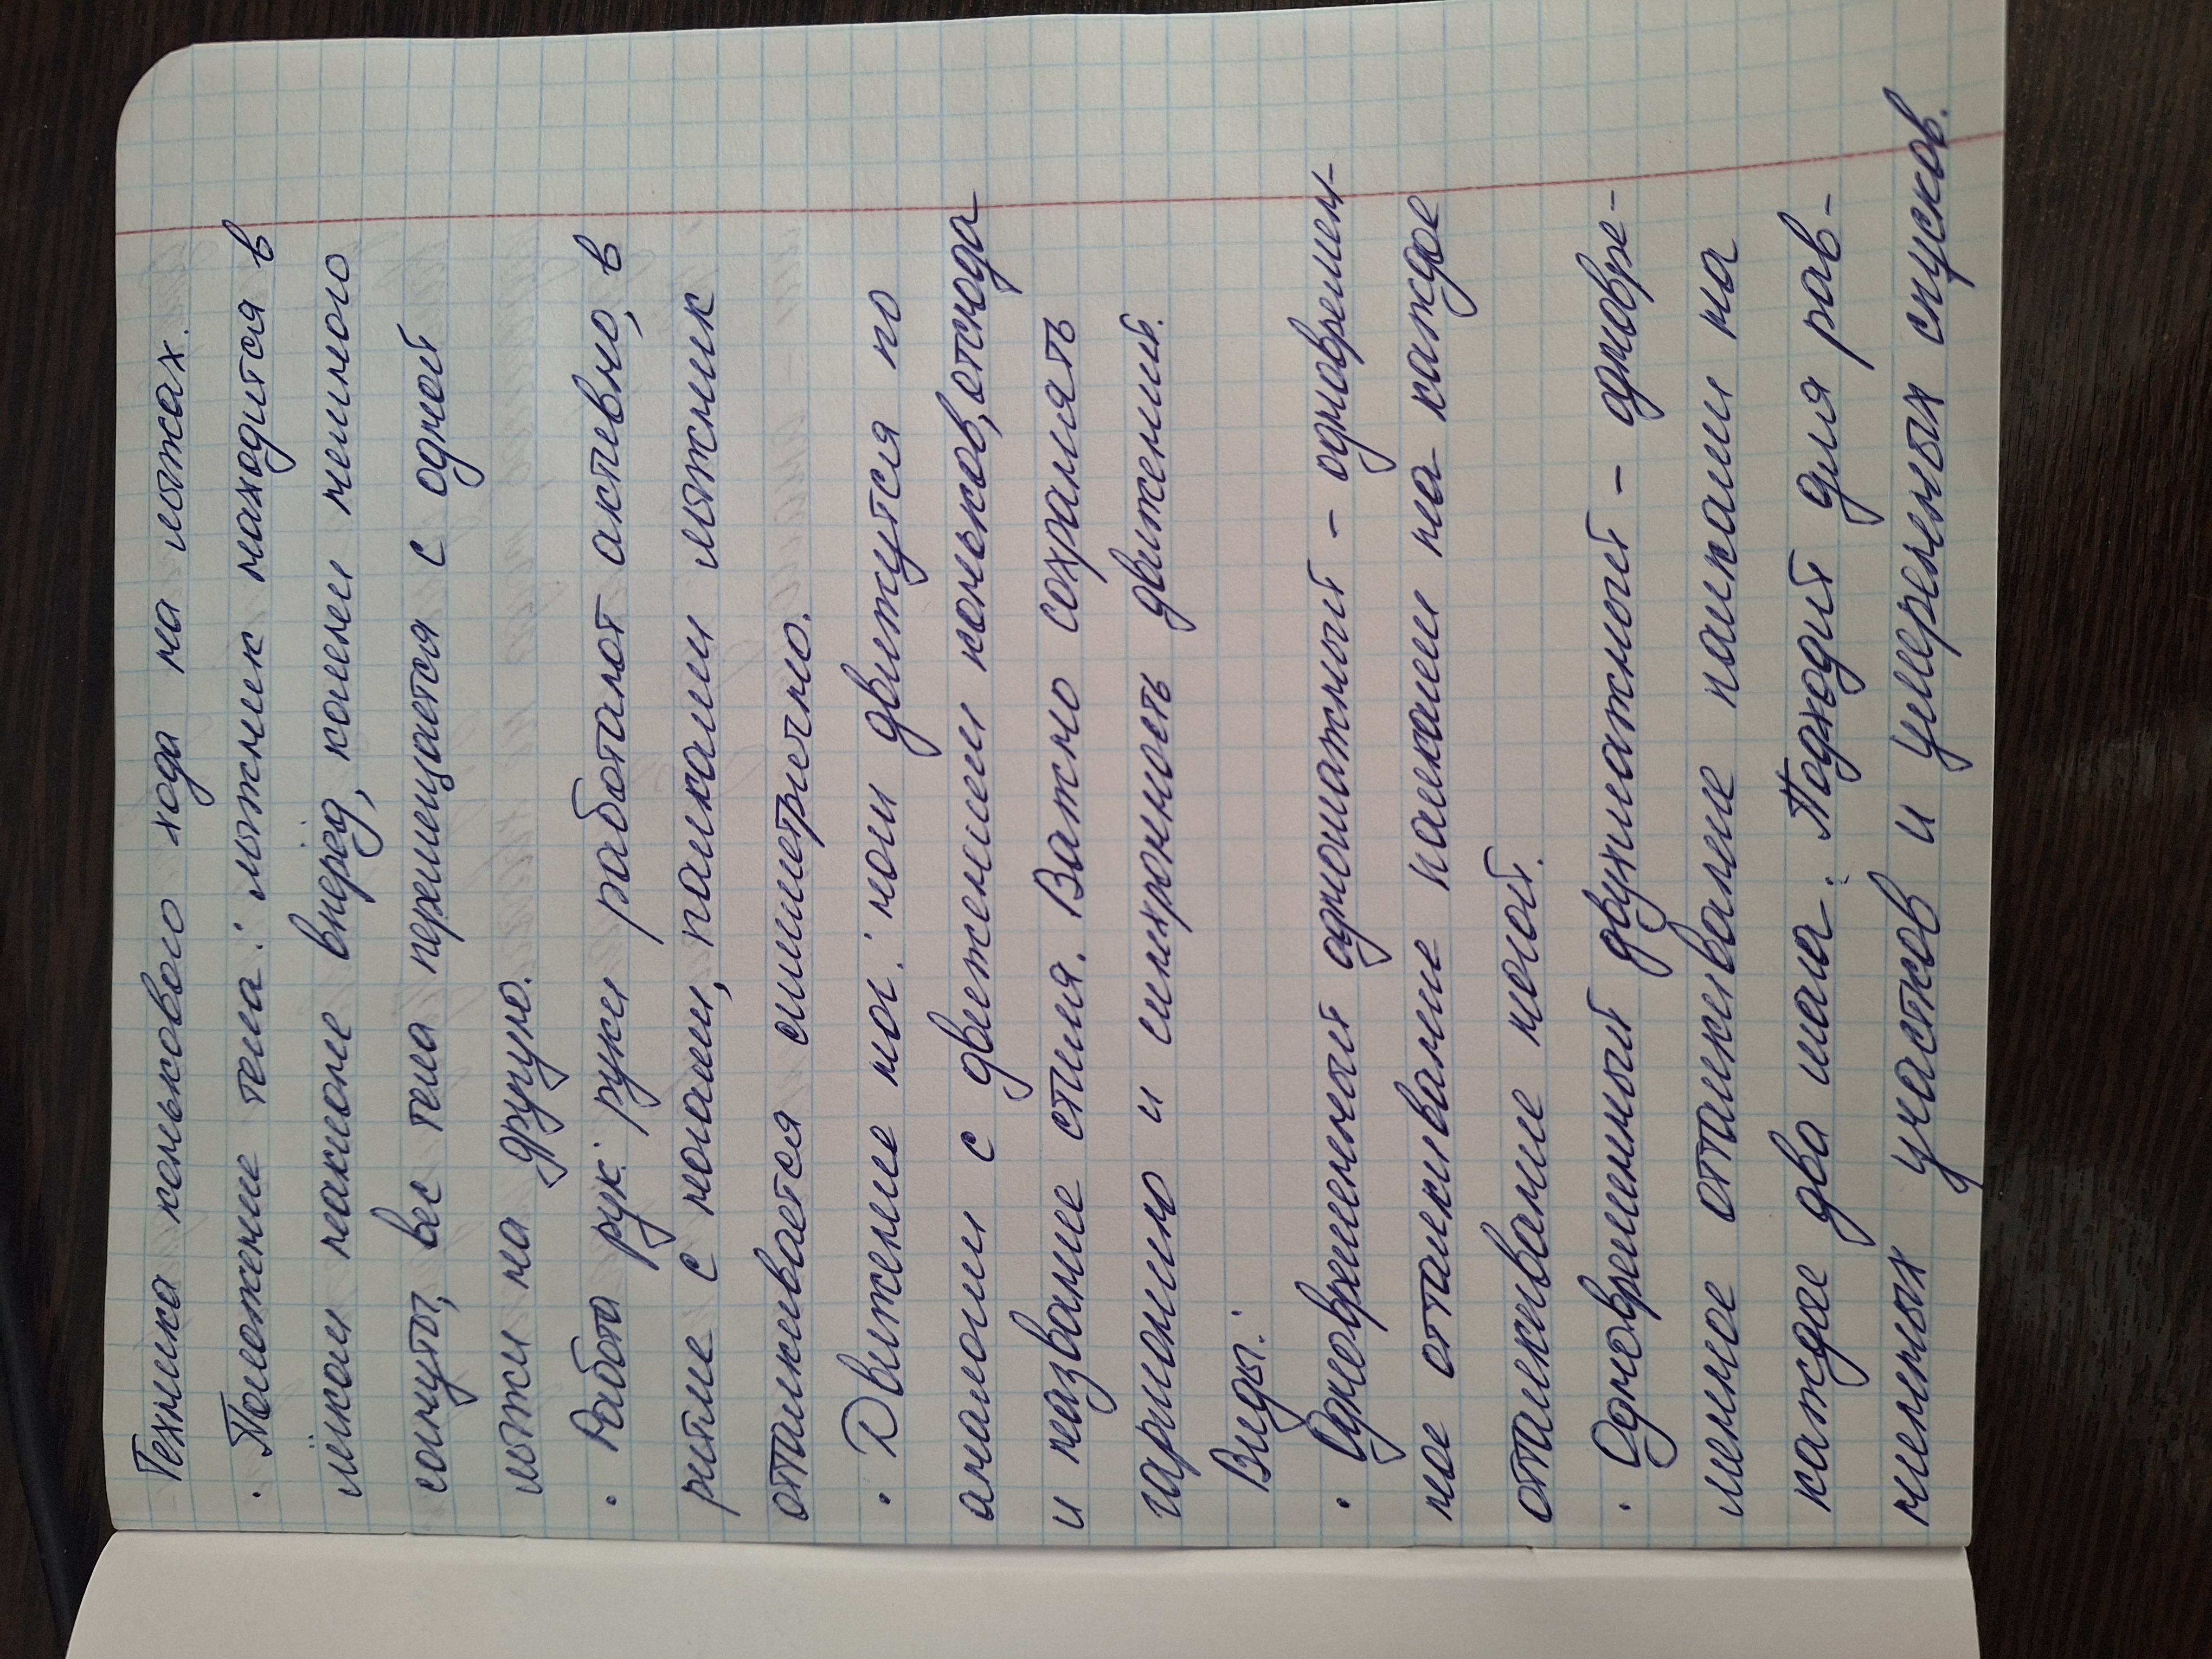 Техника конькового хода на лыжах.
· Положение тела: лыжник находится в
лёгком наклоне вперёд, колени немного
согнуты, вес тела перемещается с одной
лыжи на другую.
· Работа рук: руки работают активно, в
ритме с ногами, палками лыжник
отталкивается симметрично.
· Движение ног: ноги движутся по
аналогии с движением коньков, отсюда
и название стиля. Важно сохранять
гармонию и синхронность движений.
Виды:
· Одновременный одношажный - одновремен-
ное отталкивание палками на каждое
отталкивание ногой.
· Одновременный двухшажный - одновре-
менное отталкивание палками на
каждые два шага. Подходит для рав-
нинных участков и умеренных спусков.